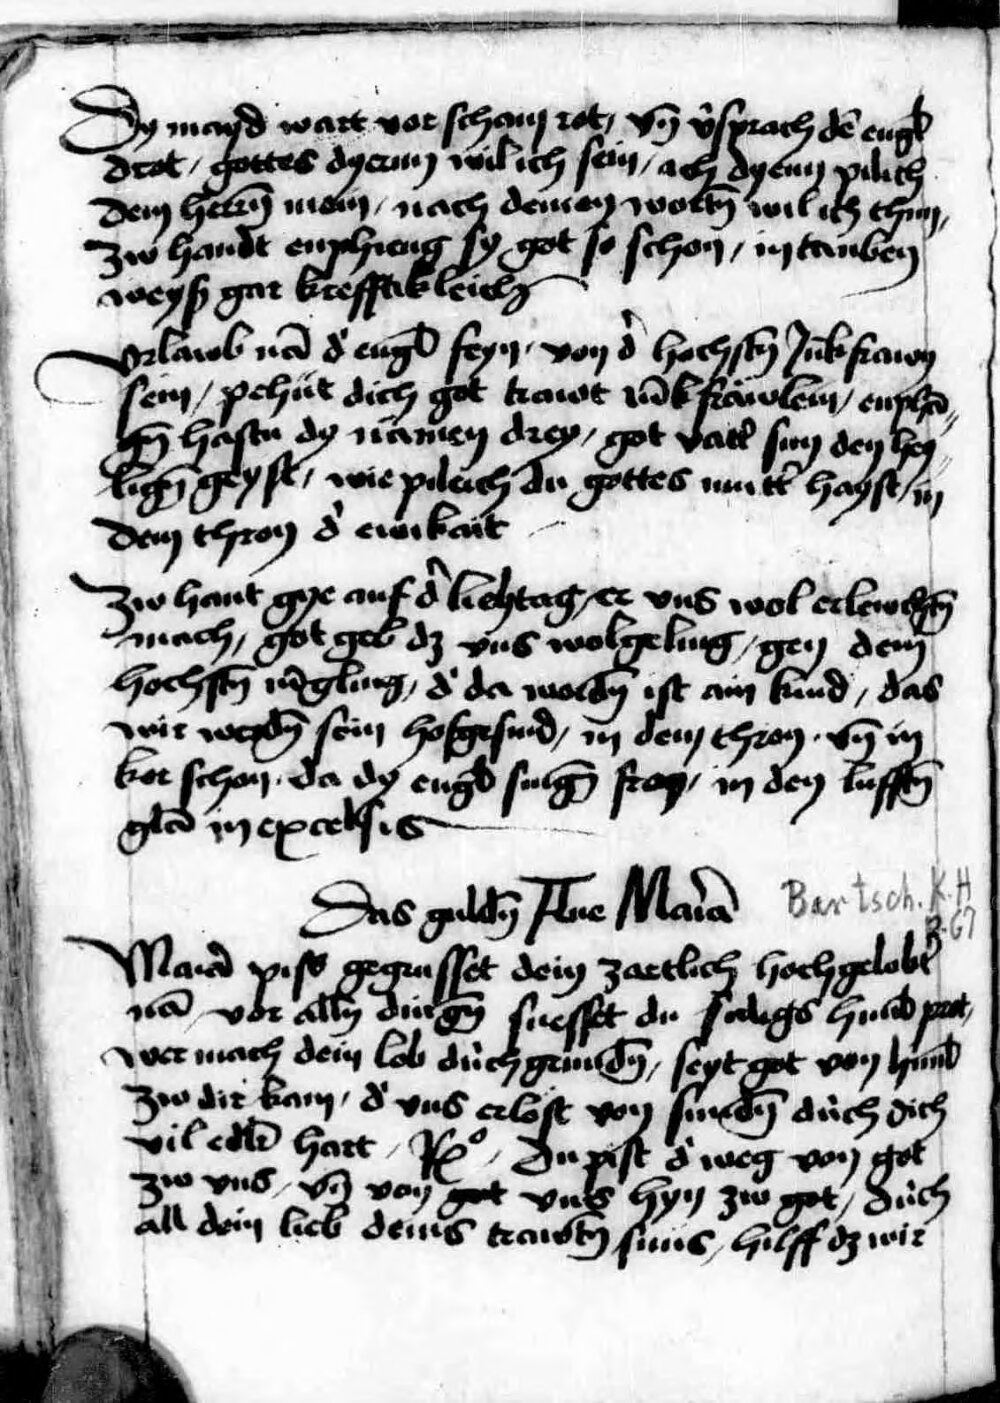 Dy mayd wart vor scham rot, vñ v̉sprach dē engl
drot, gottes dyernn wil ich sein, ach dyenn pilich
dem herrñ mein, nach deinen wortñ wil ich thun,
zw handt enphieng sy got so schon, in tauben
weyß gar krefftikleich
Vrlawb nā d̉ engl feyn, von d̉ hochstñ Junkfrawn
sein, pehüt dich got trawt iūkfrawlein, enphā„
gñ hastu dy namen drey, got vatt̉ sun den hey„
lign̄ geyst, wie pileich du gottes mutt̉ hayst, in
dem thron d̉ ewikait
Zw hant gye auf d̉ liehtag, er vns wol erlewchtñ
mach, got geb dz vns wolgeling, gen dem
hochstñ iūgling, d̉ da wordñ ist ain kind, das
wir werdñ sein hofgesind, in dem thron vñ in
kor schon, da dy engl singn̄ fron, in den lufftñ
glīa in excelsis
Das guldñ Aue Maria
Bartsch. K. H
267
Maria pist gegrusset dein zartlich hochgelobt̉
nā, vor alln dingn̄ suesset du saligs himl prot,
wer mach dein lob durchgrundñ, seyt got von himl
zw dir kam, d̉ vns erlost von sundñ durch dich
vil edle hart, Rº, Du pist d̉ weg von got
zw vns, vñ von got vns hyn zw got, durch
all dein lieb deins trawtñ suns, hilff dz wir